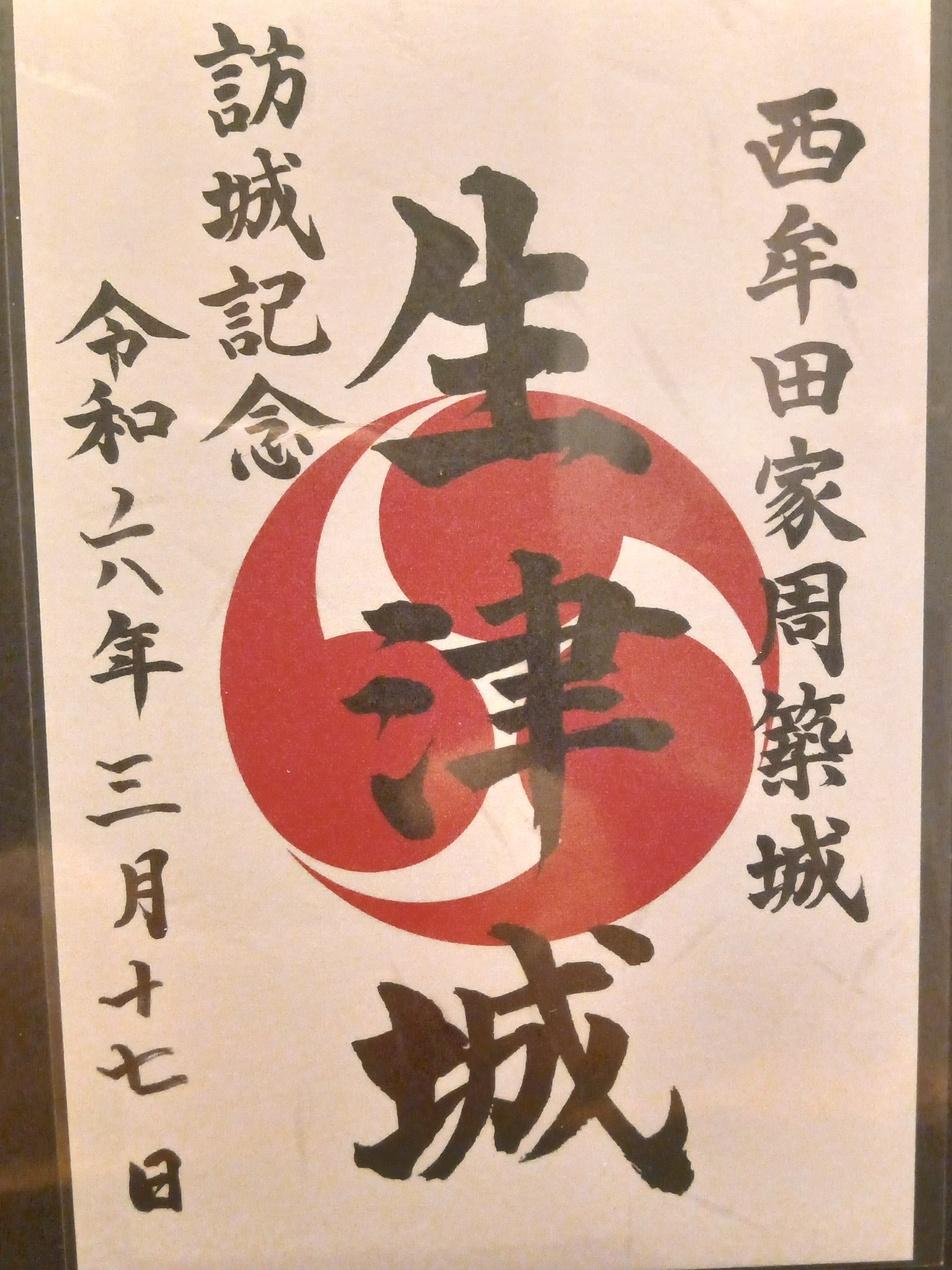 西牟田家周築城
生津城
訪城記念
令和六年三月十七日